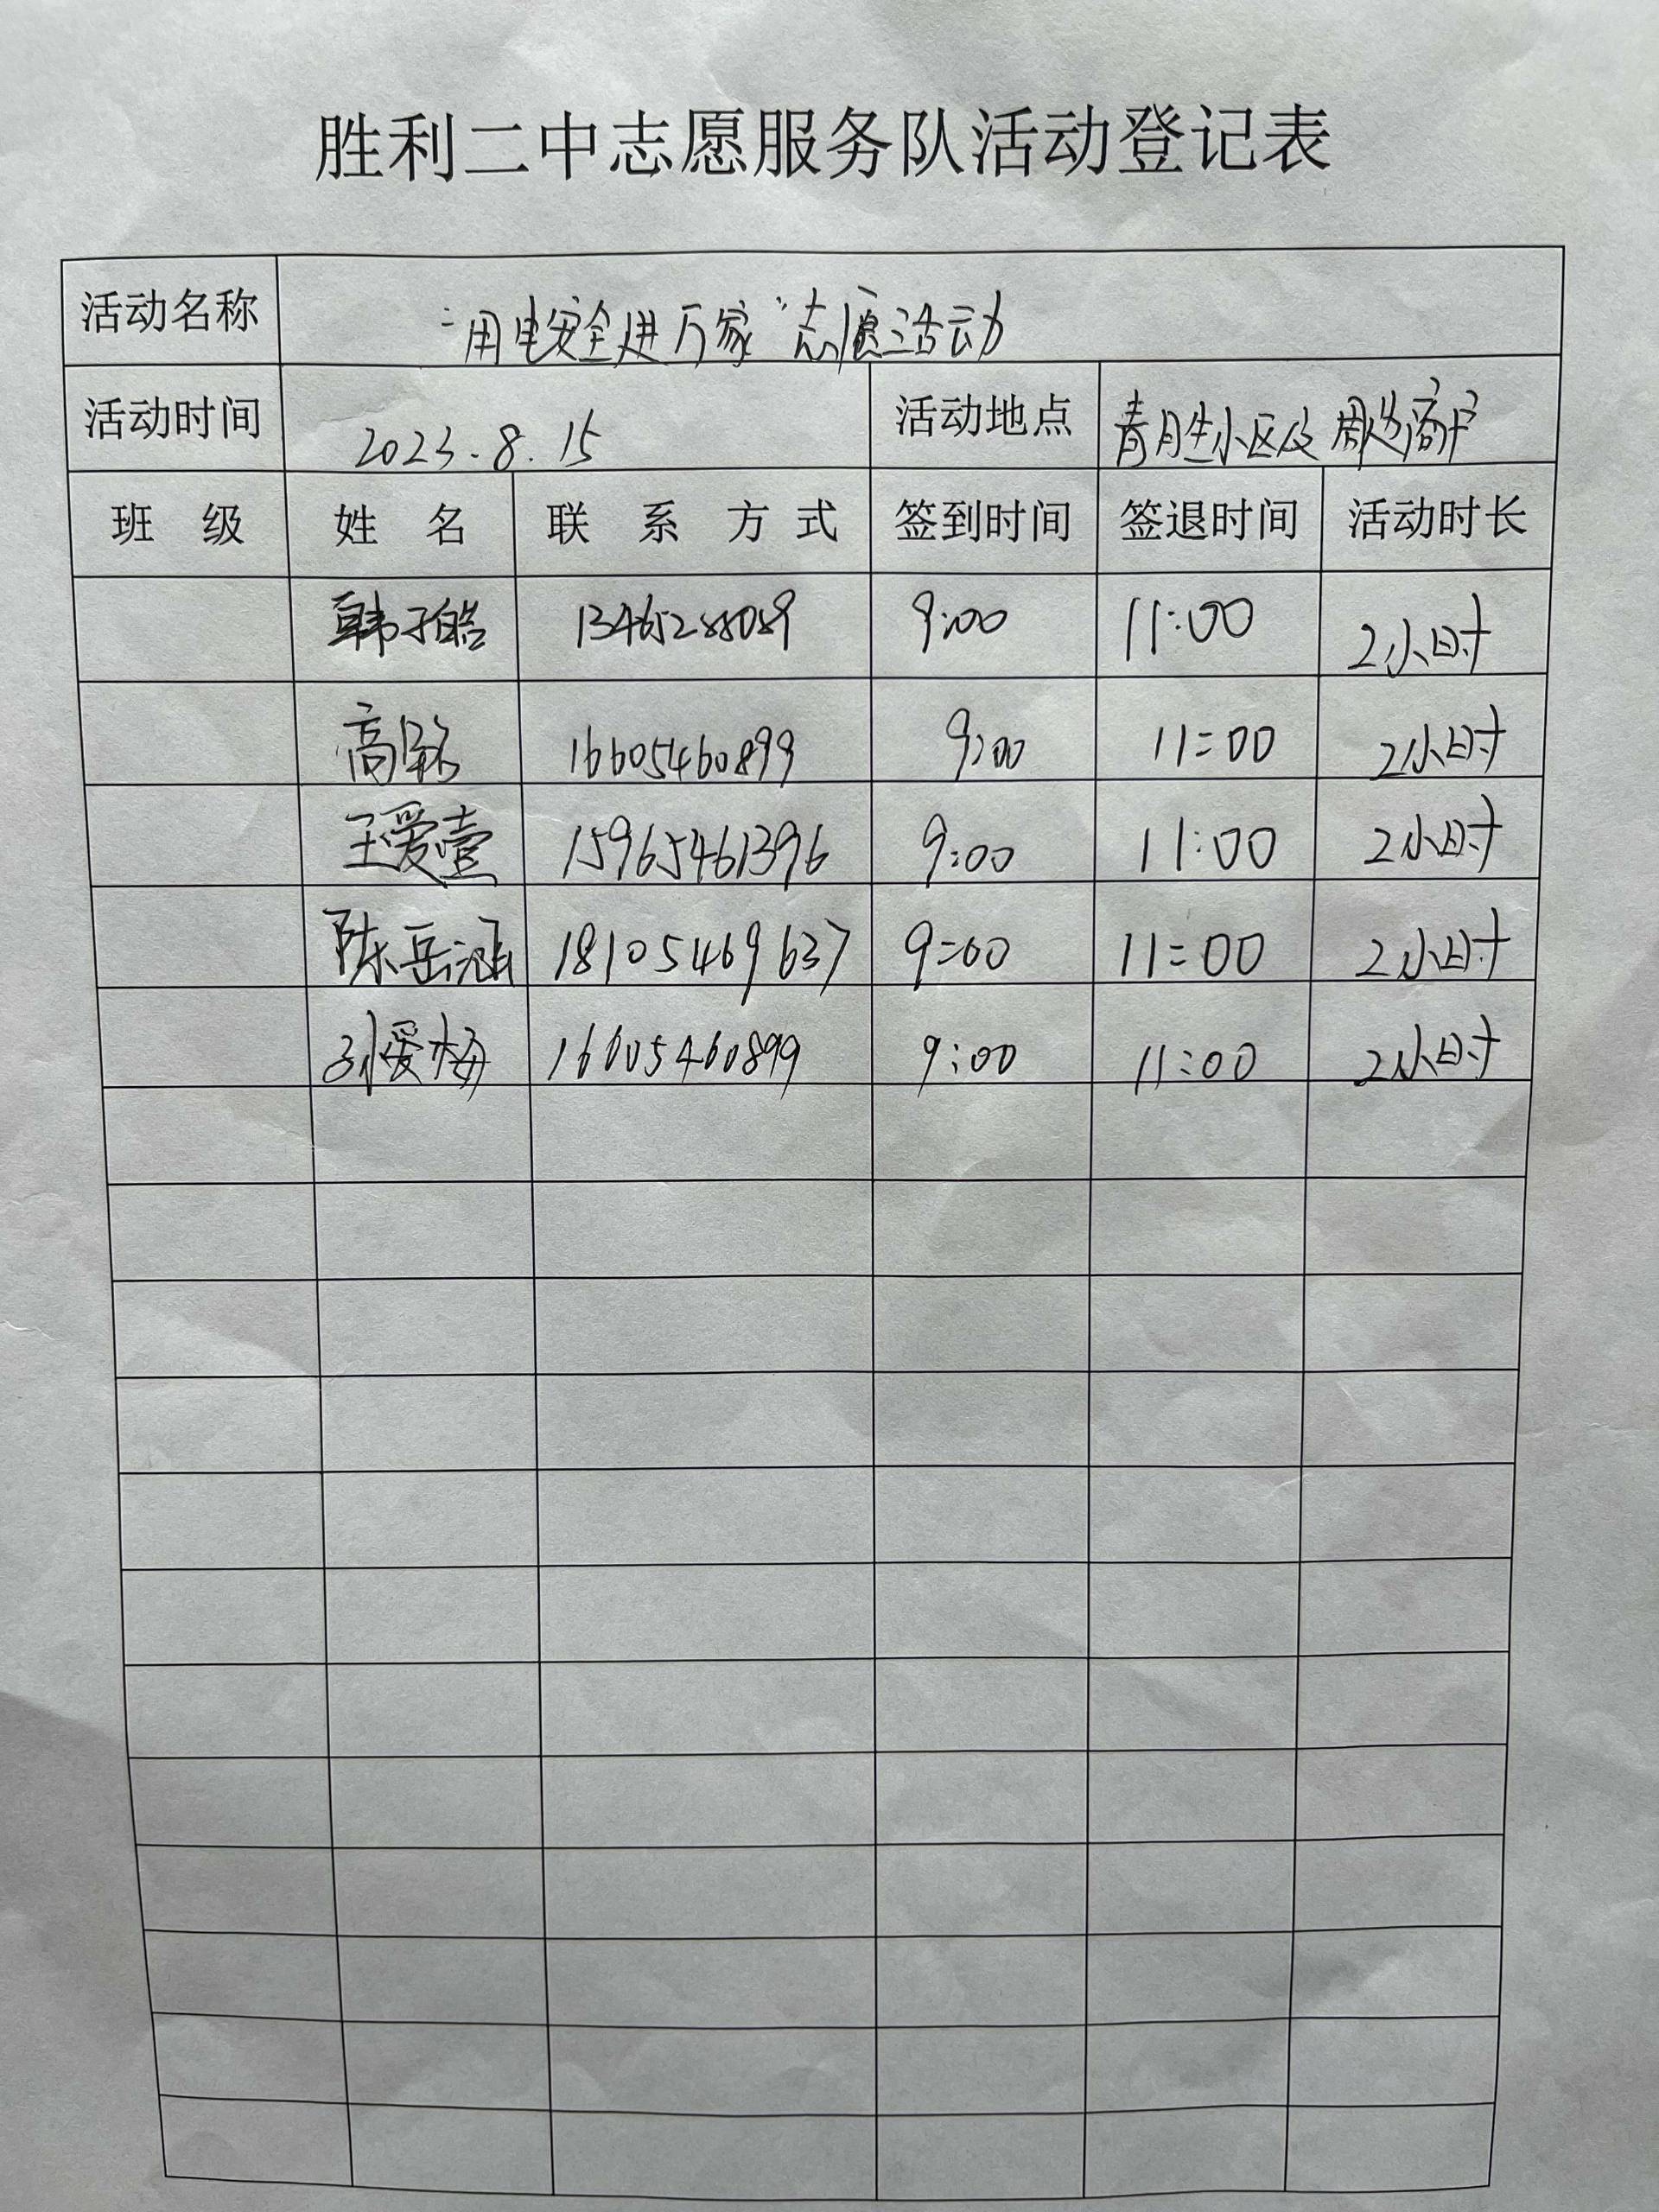 胜利二中志愿服务队活动登记表
活动名称 “用电安全进万家”志愿活动
活动时间 2023.8.15 活动地点 青胜小区及周边商户
班 级 姓 名 联 系 方 式 签到时间 签退时间 活动时长
韩子皓 13465288089 9:00 11:00 2小时
高 16605460899 9:00 11:00 2小时
王爱萱 15965461396 9:00 11:00 2小时
陈岳涵 18105469637 9:00 11:00 2小时
孙爱梅 16605460899 9:00 11:00 2小时